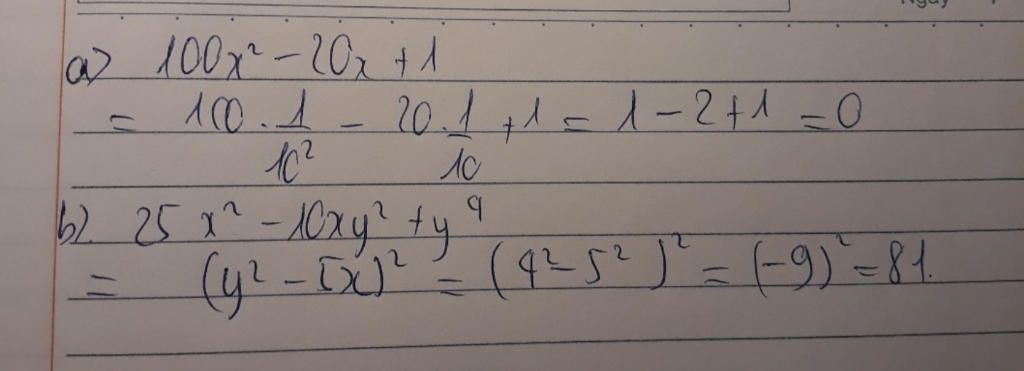 Ngày
a) 100x² - 20x + 1
= 100 . 1/10² - 20 . 1/10 + 1 = 1 - 2 + 1 = 0
b). 25 x² - 10xy² + y⁴
= (y² - 5x)² = (4² - 5²)² = (-9)² = 81.